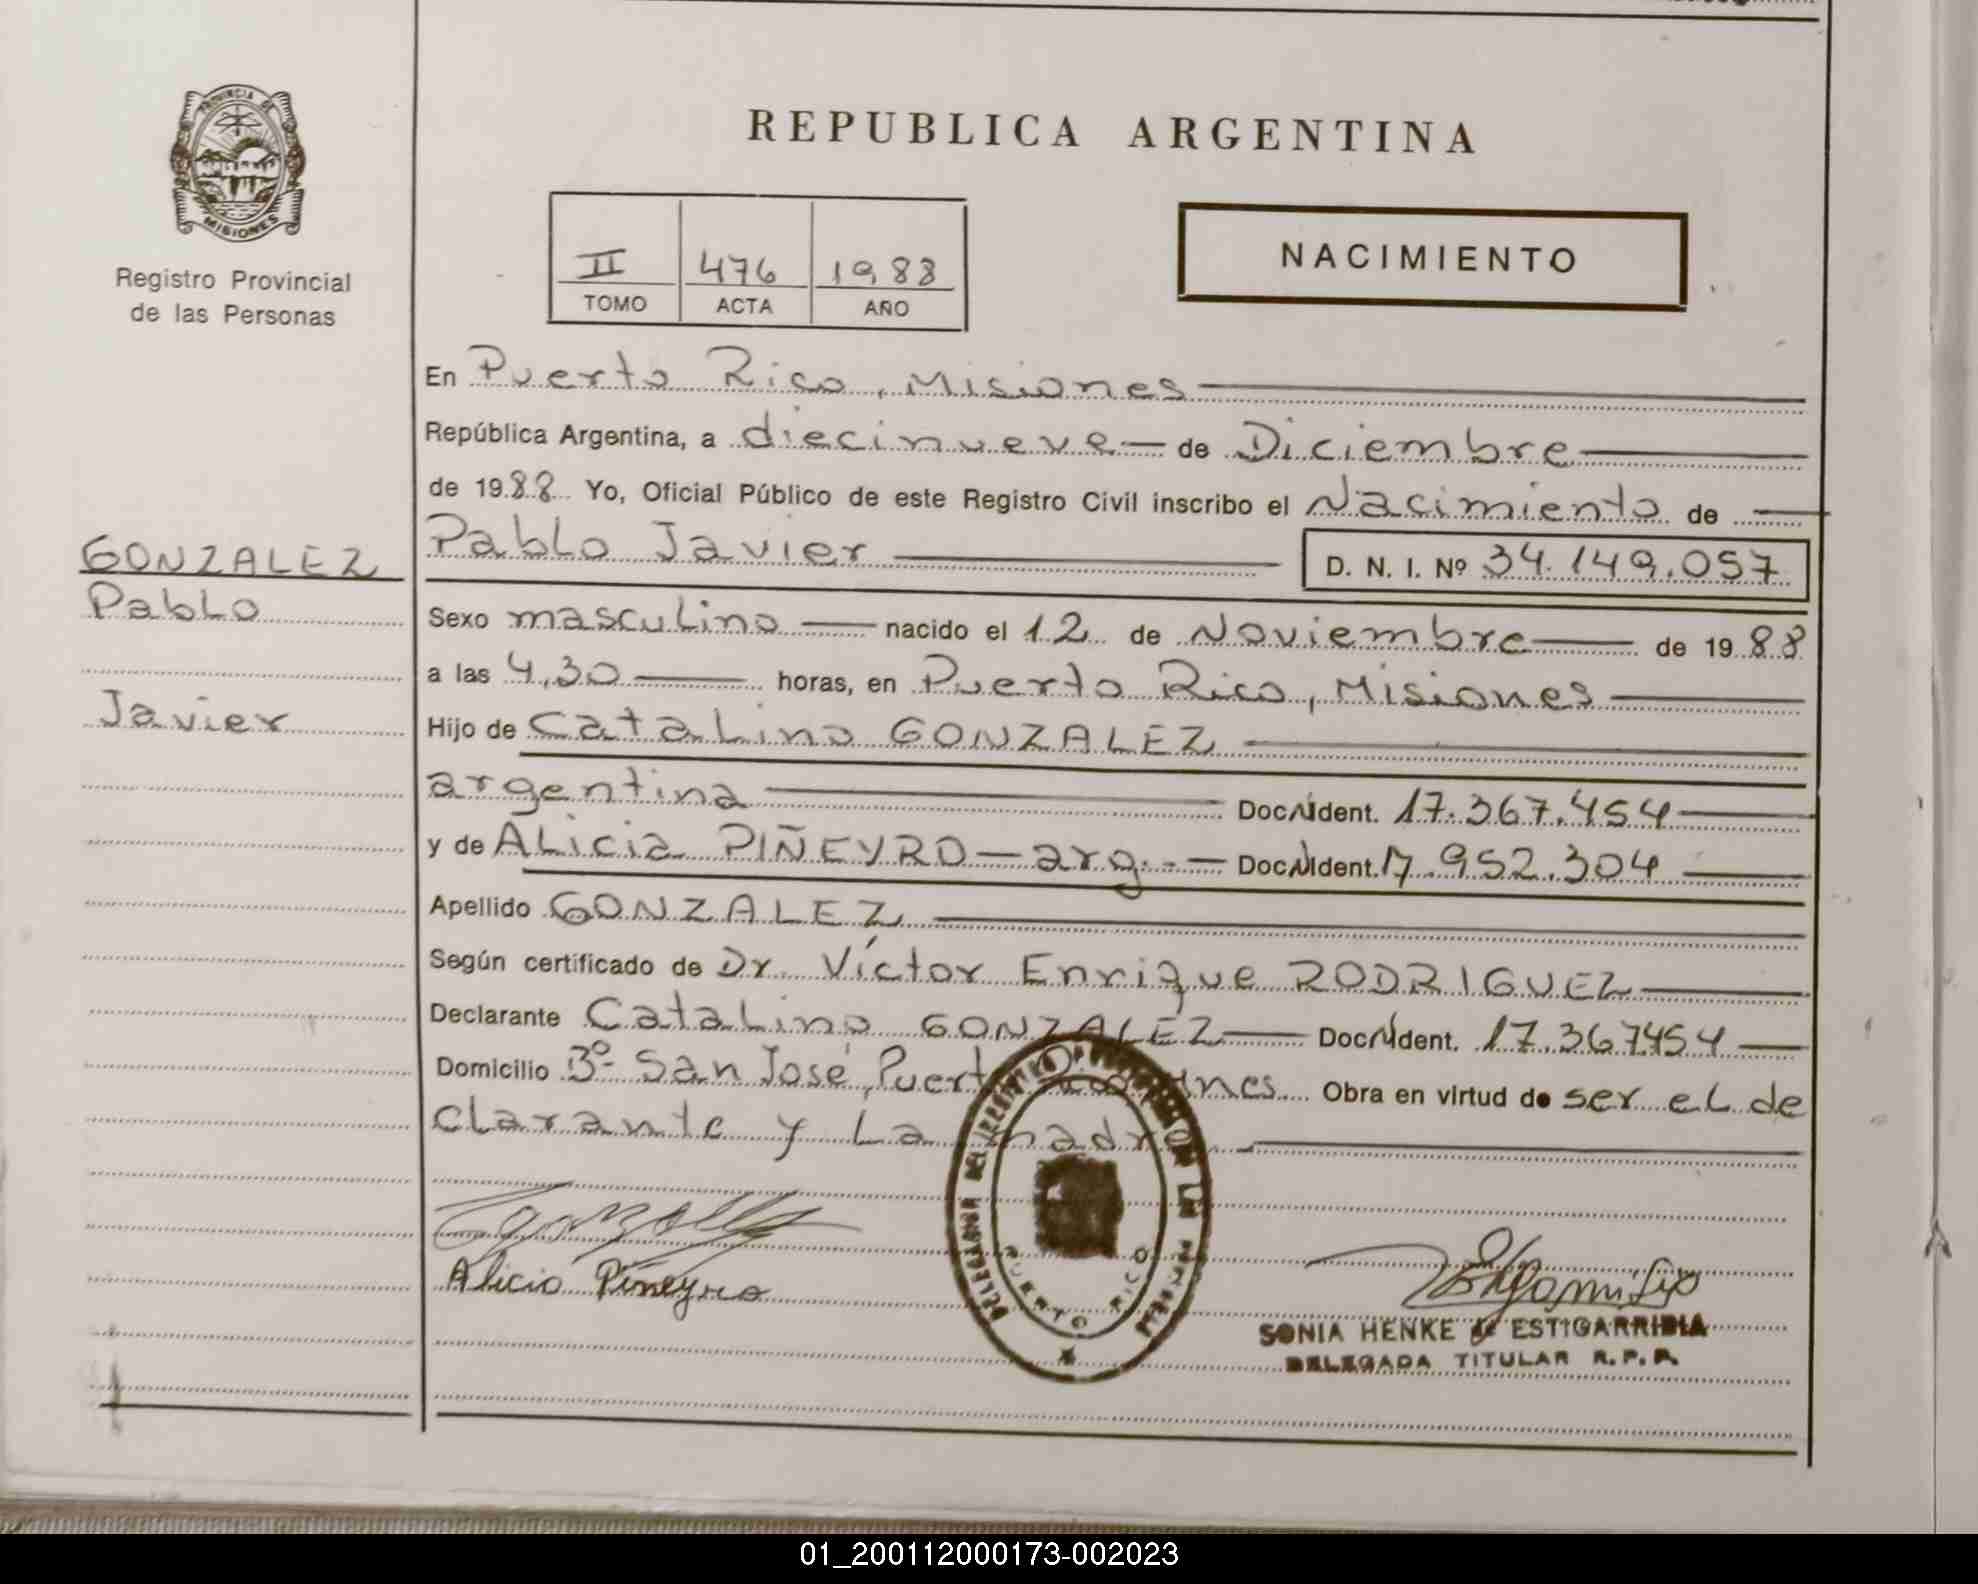 PROVINCIA DE
MISIONES
Registro Provincial
de las Personas
REPUBLICA ARGENTINA
II 476 1988
TOMO ACTA AÑO
NACIMIENTO
En Puerto Rico, Misiones
República Argentina, a diecinueve de Diciembre
de 1988 Yo, Oficial Público de este Registro Civil inscribo el Nacimiento de
GONZALEZ
Pablo
Javier
Pablo Javier D. N. I. Nº 34.149.057
Sexo masculino nacido el 12 de Noviembre de 1988
a las 4,30 horas, en Puerto Rico, Misiones
Hijo de Catalino GONZALEZ
argentina Doc. Ident. 17.367.454
y de Alicia PIÑEYRO - arg. - Doc. Ident. 17.952.304
Apellido GONZALEZ
Según certificado de Dr. Víctor Enrique RODRIGUEZ
Declarante Catalino GONZALEZ Doc. Ident. 17.367454
Domicilio Bº San José, Puerto Obra en virtud de ser el de
clarante y La madre
Alicia Piñeyro
DELEGACION DEL REGISTRO PROVINCIAL DE LAS PERSONAS
PUERTO RICO
SONIA HENKE de ESTIGARRIBIA
DELEGADA TITULAR R.P.P.
01_200112000173-002023